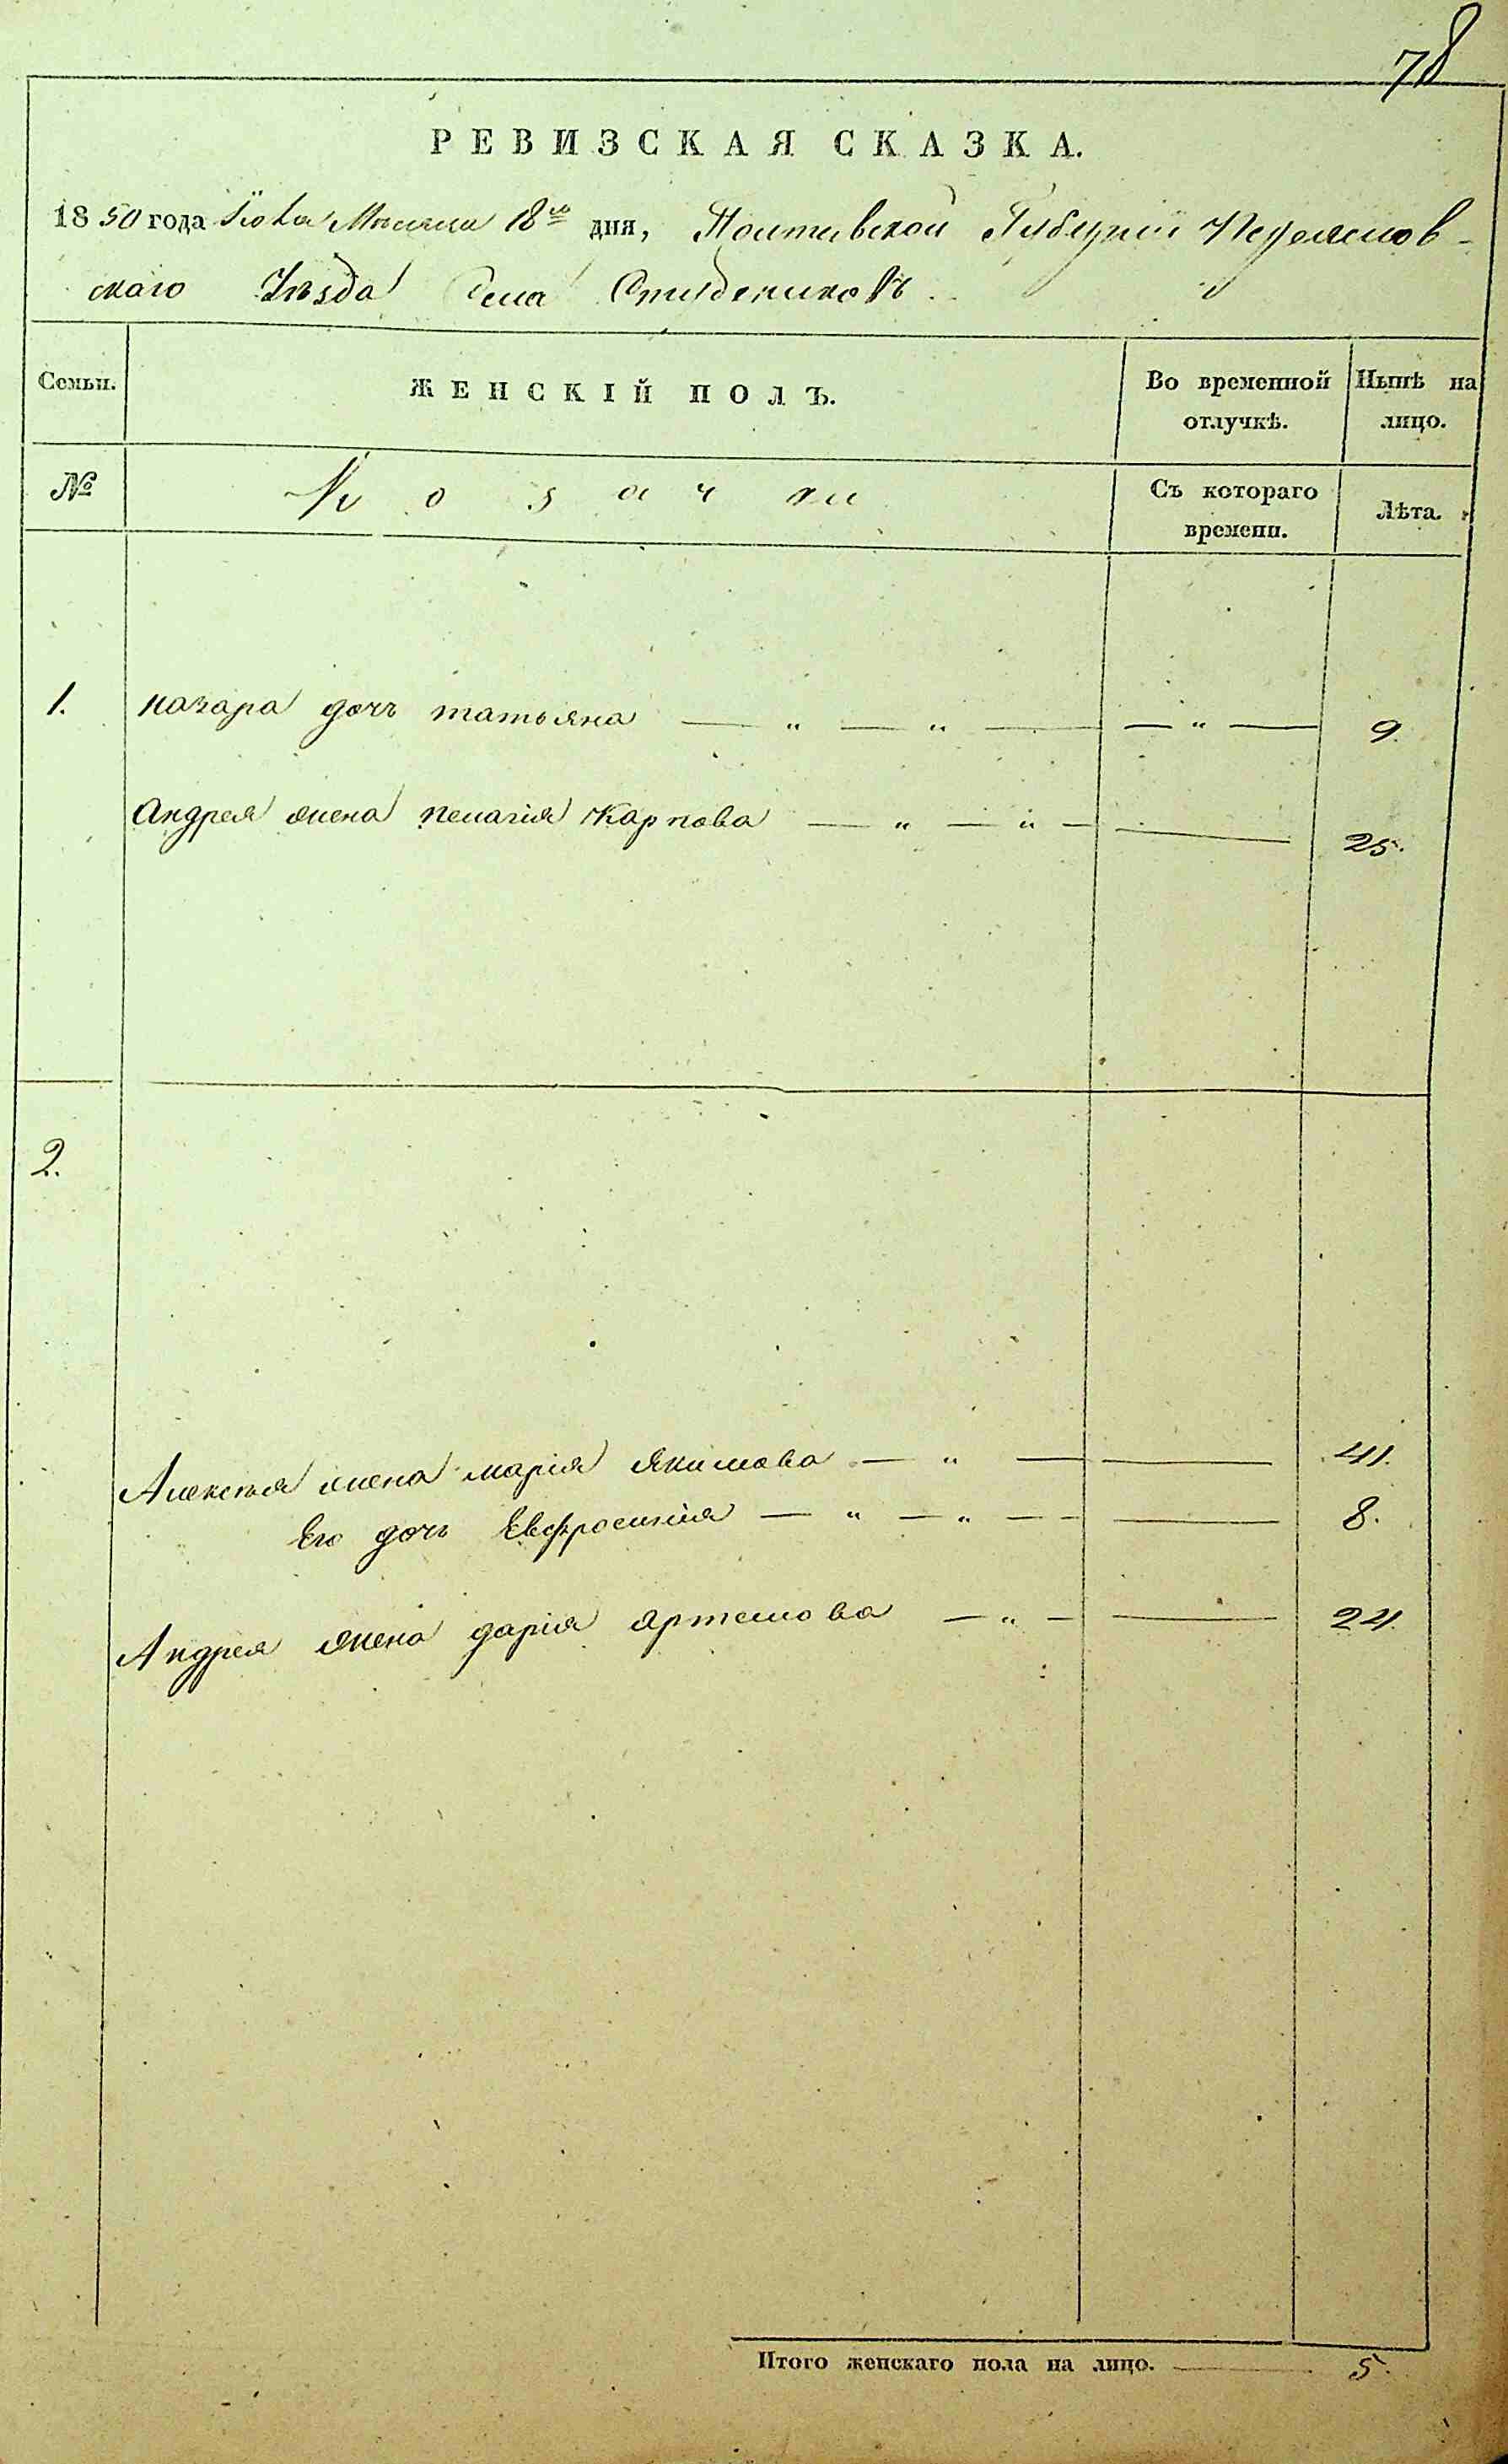 78
РЕВИЗСКАЯ СКАЗКА.
1850 года Мѣсяца 18го дня, Полтавской Губерніи Переяслов-
скаго Уѣзда Села Студениковъ.
Семьи. ЖЕНСКІЙ ПОЛЪ. Во временной отлучкѣ. Нынѣ на лицо.
№ Козачки Съ котораго времени. Лѣта.
1. назара дочь татьяна — „ — „ — — „ — 9.
Андрея жена пелагія Карпова — „ — „ — — 25.
2.
Алексѣя жена марія Якимова — „ — — 41.
Его дочь Евфросинія — „ — „ — — 8.
Андрея жена дарія Артемова — „ — — 24.
Итого женскаго пола на лицо. — 5.